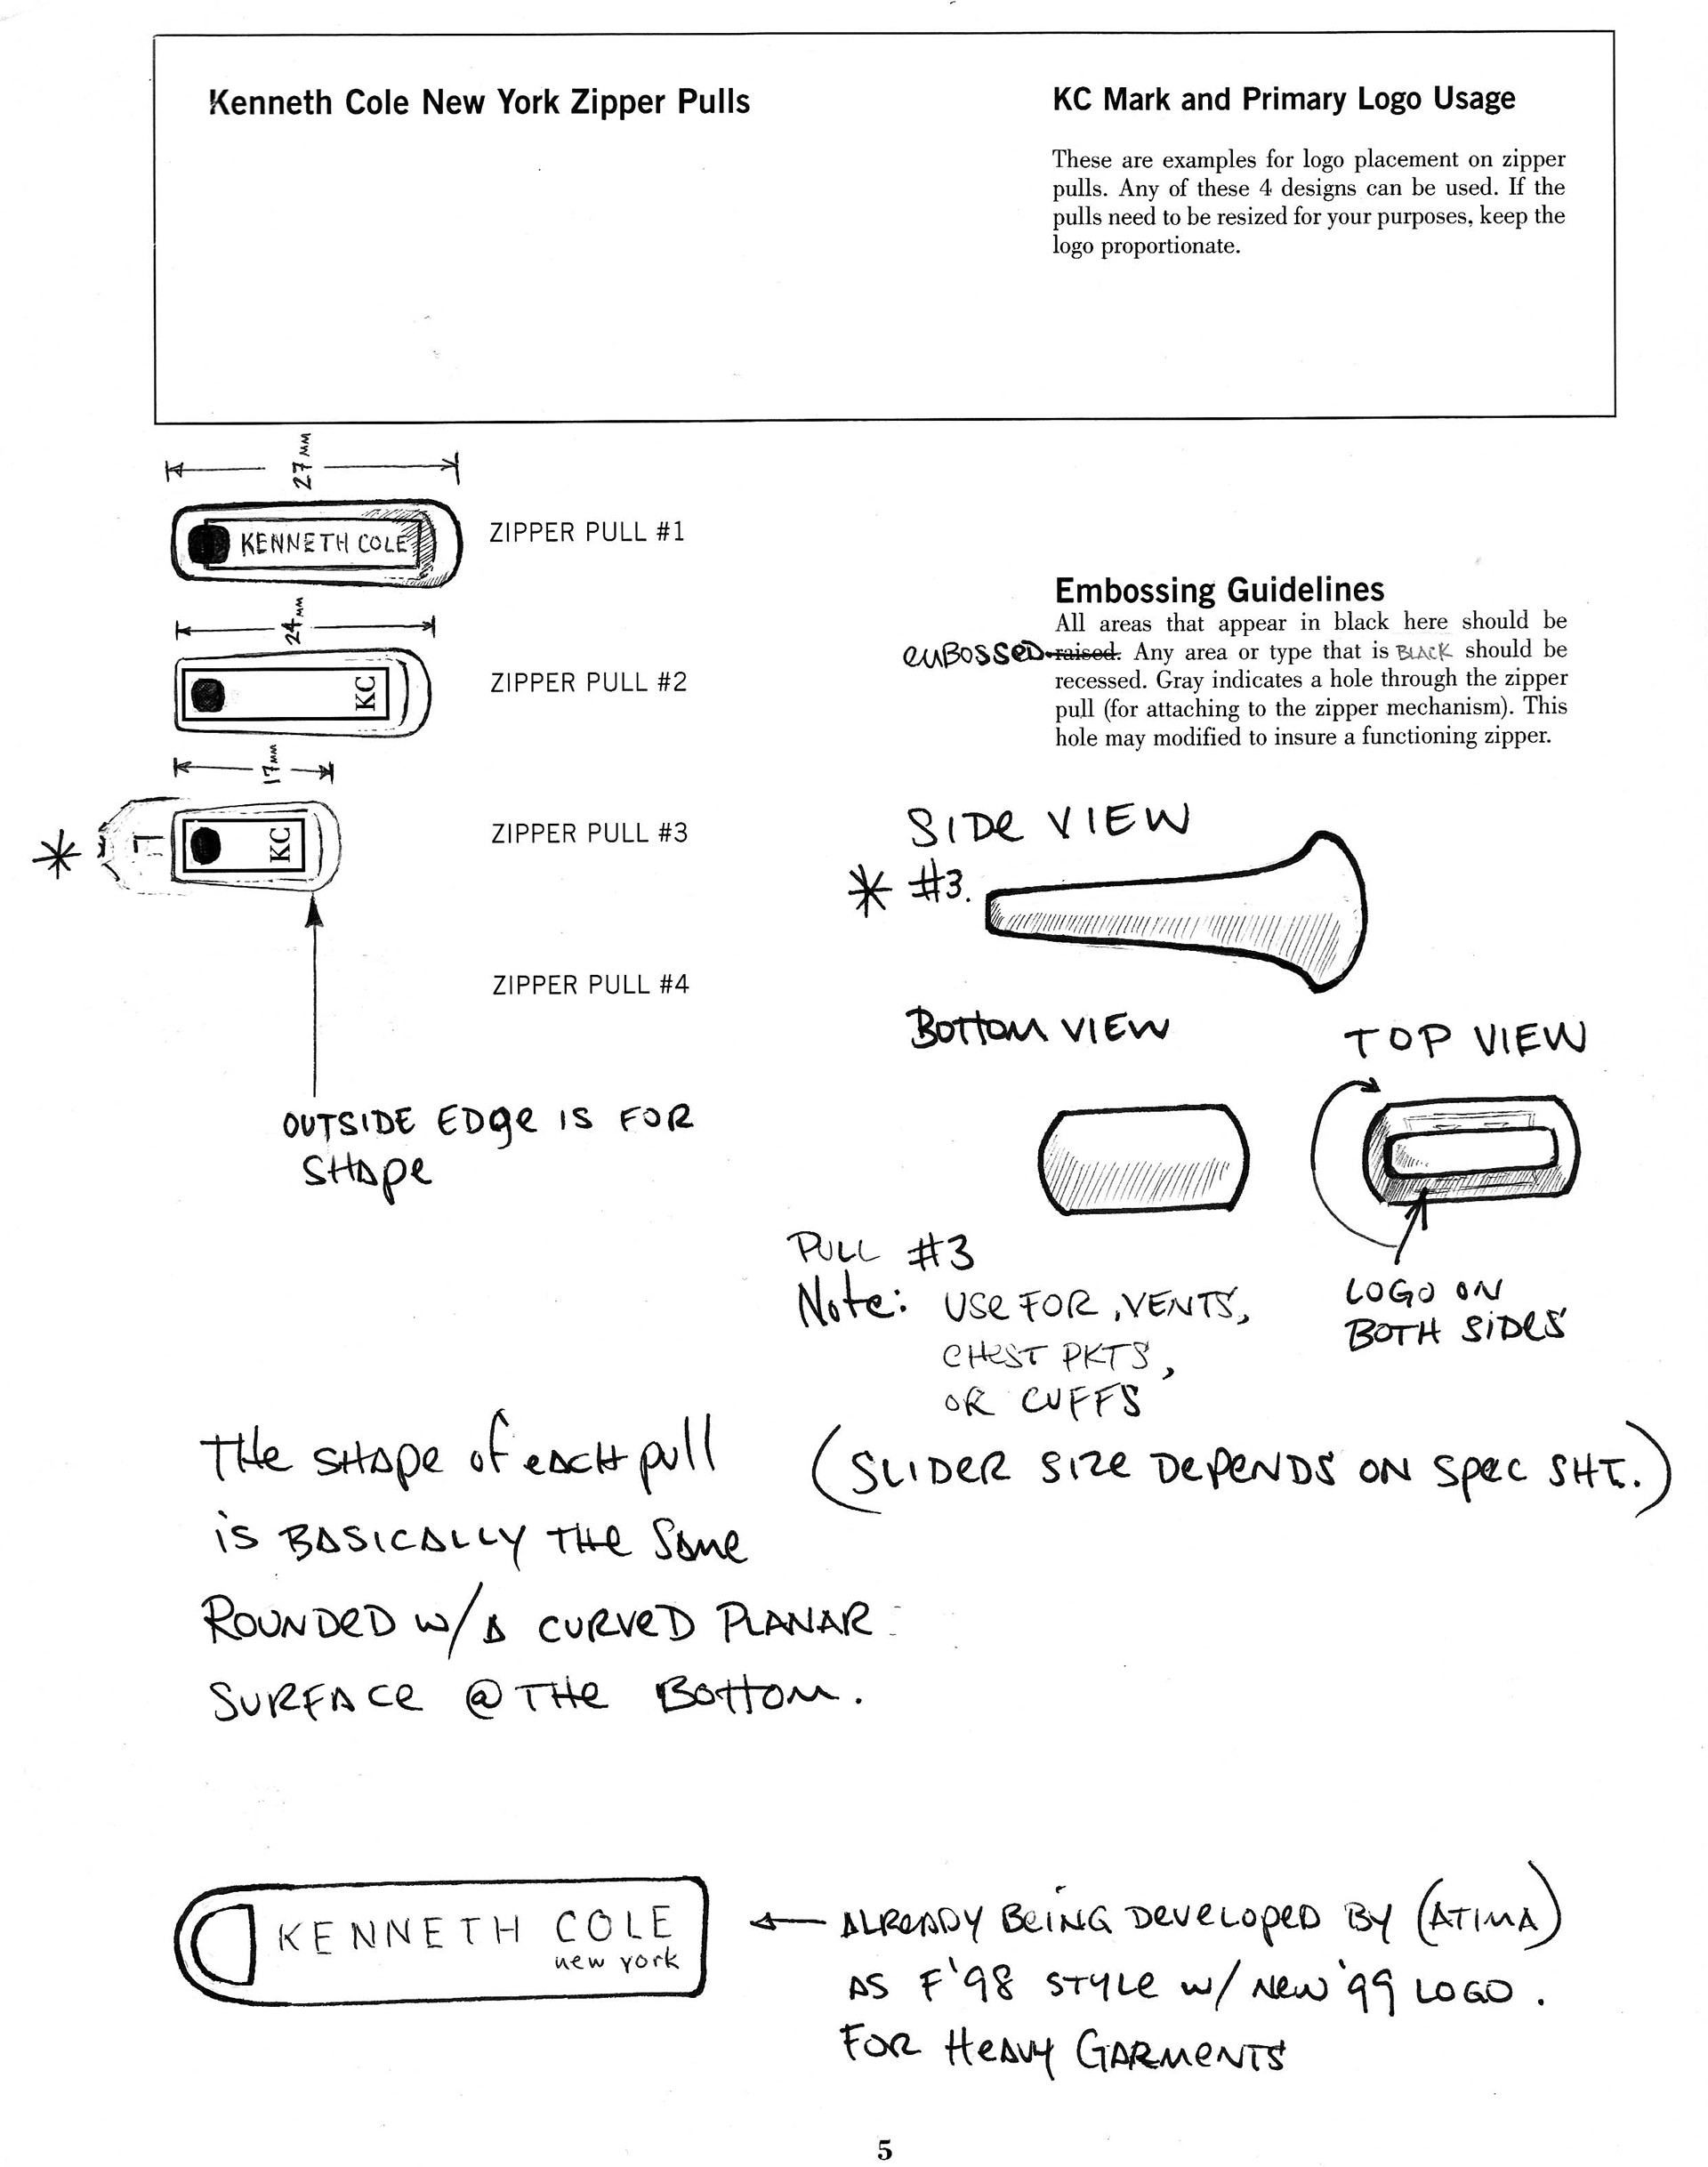 Kenneth Cole New York Zipper Pulls
KC Mark and Primary Logo Usage
These are examples for logo placement on zipper
pulls. Any of these 4 designs can be used. If the
pulls need to be resized for your purposes, keep the
logo proportionate.
27 MM
KENNETH COLE
ZIPPER PULL #1
24 MM
KC
ZIPPER PULL #2
17 MM
KC
ZIPPER PULL #3
ZIPPER PULL #4
OUTSIDE EDGE IS FOR
SHAPE
Embossing Guidelines
All areas that appear in black here should be
EMBOSSED raised. Any area or type that is BLACK should be
recessed. Gray indicates a hole through the zipper
pull (for attaching to the zipper mechanism). This
hole may modified to insure a functioning zipper.
SIDE VIEW
* #3.
BOTTOM VIEW
TOP VIEW
LOGO ON
BOTH SIDES
PULL #3
Note: USE FOR, VENTS,
CHEST PKTS,
OR CUFFS
(SLIDER SIZE DEPENDS ON SPEC SHT.)
THE SHAPE OF EACH PULL
IS BASICALLY THE SAME
ROUNDED W/ A CURVED PLANAR
SURFACE @ THE BOTTOM.
KENNETH COLE
new york
ALREADY BEING DEVELOPED BY (ATIMA)
AS F'98 STYLE W/ NEW '99 LOGO.
FOR HEAVY GARMENTS
5